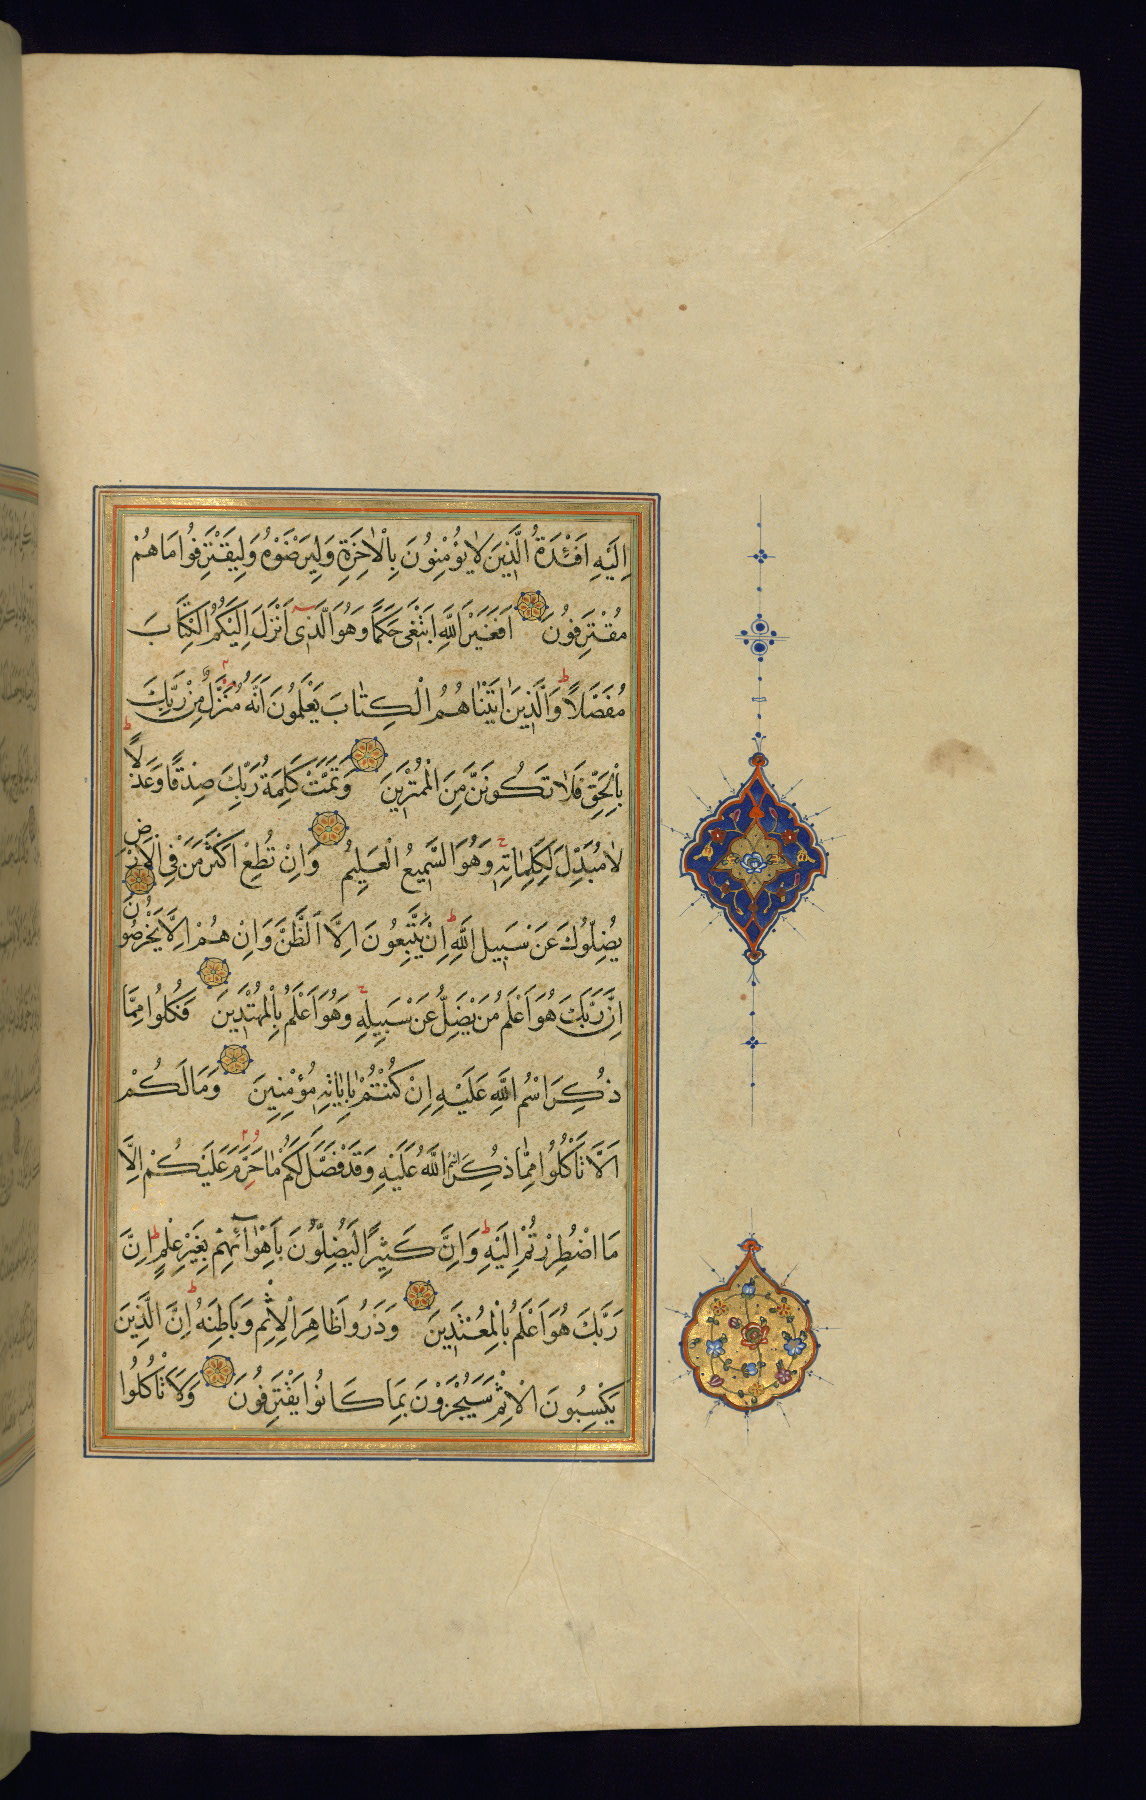 اِلَيْهِ اَفْئِدَةُ الَّذِينَ لَا يُؤْمِنُونَ بِالْاٰخِرَةِ وَلِيَرْضَوْهُ وَلِيَقْتَرِفُوا مَا هُمْ
مُقْتَرِفُونَ اَفَغَيْرَ اللّٰهِ اَبْتَغِى حَكَمًا وَهُوَ الَّذِى اَنْزَلَ اِلَيْكُمُ الْكِتَابَ
مُفَصَّلًا ط وَالَّذِينَ اٰتَيْنَاهُمُ الْكِتَابَ يَعْلَمُونَ اَنَّهُ مُنَزَّلٌ مِنْ رَبِّكَ
بِالْحَقِّ فَلَا تَكُونَنَّ مِنَ الْمُمْتَرِينَ وَتَمَّتْ كَلِمَةُ رَبِّكَ صِدْقًا وَعَدْلًا ط
لَا مُبَدِّلَ لِكَلِمَاتِهِ ج وَهُوَ السَّمِيعُ الْعَلِيمُ وَاِنْ تُطِعْ اَكْثَرَ مَنْ فِى الْاَرْضِ
يُضِلُّوكَ عَنْ سَبِيلِ اللّٰهِ ط اِنْ يَتَّبِعُونَ اِلَّا الظَّنَّ وَاِنْ هُمْ اِلَّا يَخْرُصُونَ
اِنَّ رَبَّكَ هُوَ اَعْلَمُ مَنْ يَضِلُّ عَنْ سَبِيلِهِ ج وَهُوَ اَعْلَمُ بِالْمُهْتَدِينَ فَكُلُوا مِمَّا
ذُكِرَ اسْمُ اللّٰهِ عَلَيْهِ اِنْ كُنْتُمْ بِاٰيَاتِهِ مُؤْمِنِينَ وَمَا لَكُمْ
اَلَّا تَأْكُلُوا مِمَّا ذُكِرَ اسْمُ اللّٰهِ عَلَيْهِ وَقَدْ فَصَّلَ لَكُمْ مَا حَرَّمَ عَلَيْكُمْ اِلَّا
مَا اضْطُرِرْتُمْ اِلَيْهِ ط وَاِنَّ كَثِيرًا لَيُضِلُّونَ بِاَهْوَآئِهِمْ بِغَيْرِ عِلْمٍ ط اِنَّ
رَبَّكَ هُوَ اَعْلَمُ بِالْمُعْتَدِينَ وَذَرُوا ظَاهِرَ الْاِثْمِ وَبَاطِنَهُ ط اِنَّ الَّذِينَ
يَكْسِبُونَ الْاِثْمَ سَيُجْزَوْنَ بِمَا كَانُوا يَقْتَرِفُونَ وَلَا تَأْكُلُوا